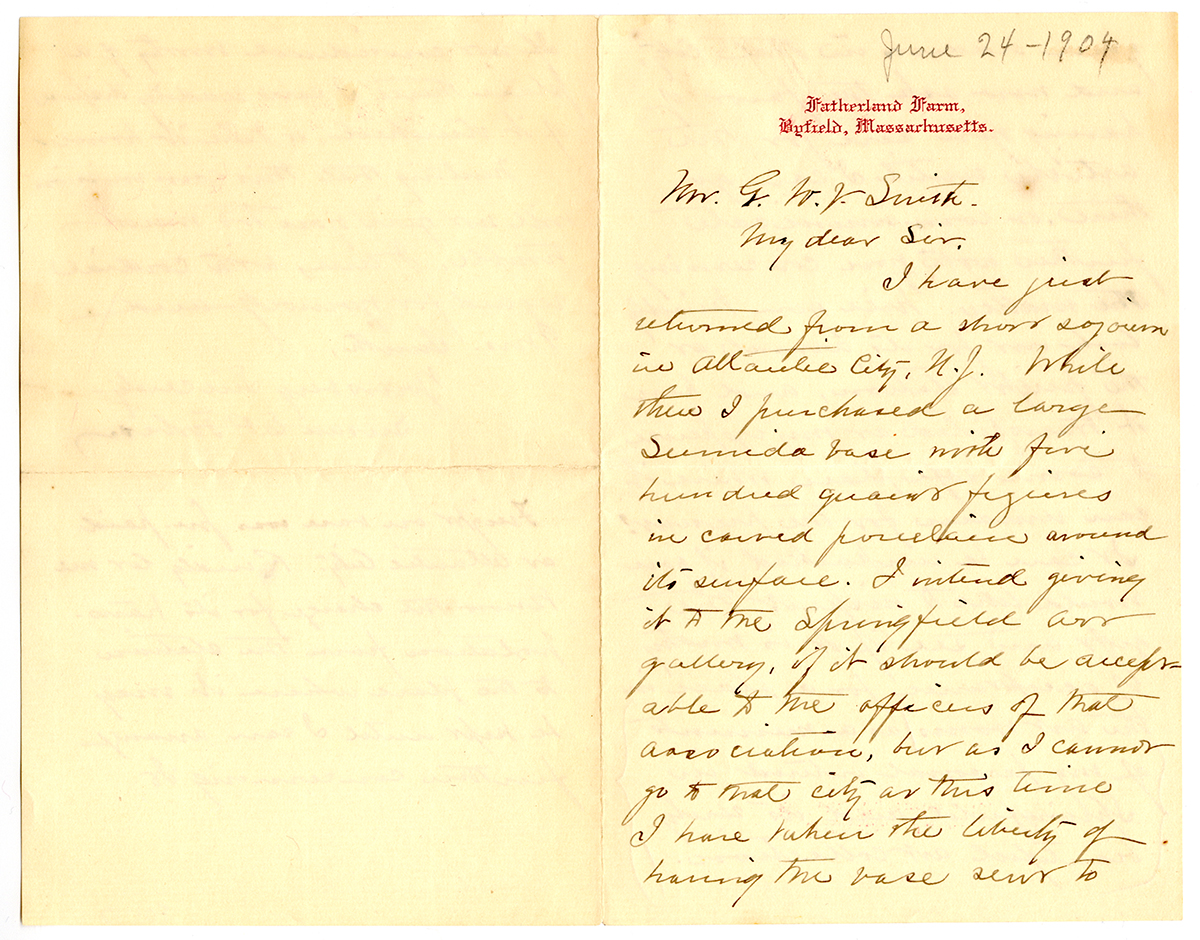 June 24-1904
Fatherland Farm,
Byfield, Massachusetts.
Mr. G. W. V. Smith.
My dear Sir.
I have just
returned from a short sojourn
in Atlantic City, N.J. While
there I purchased a large
Sumida vase with five
hundred quaint figures
in carved porcelain around
its surface. I intend giving
it to the Springfield art
gallery, if it should be accept-
able to the officers of that
association, but as I cannot
go to that city at this time
I have taken the liberty of
having the vase sent to